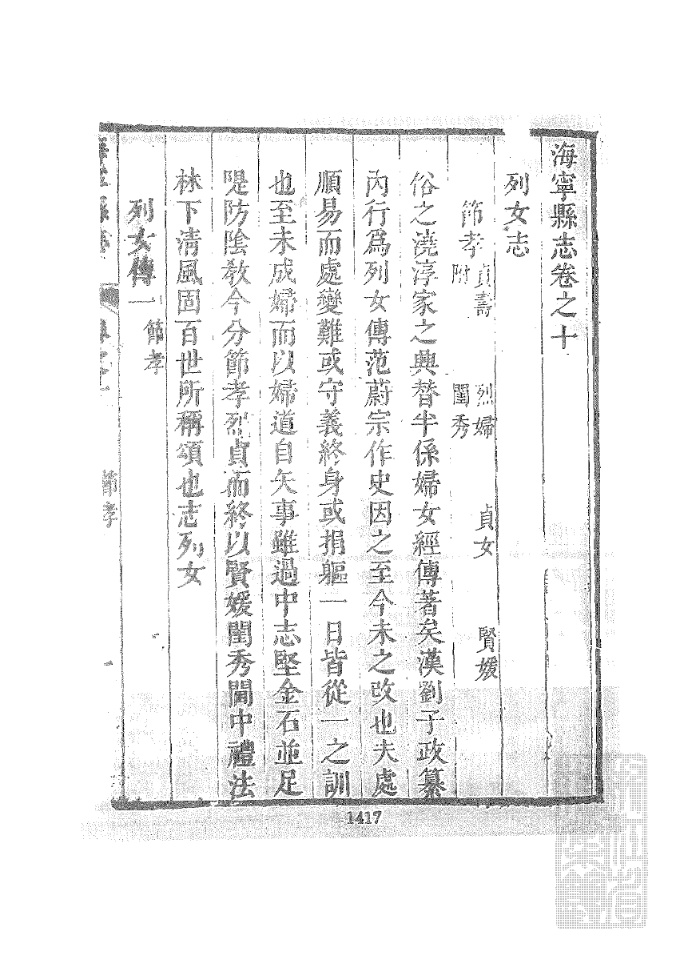 海寧縣志卷之十
列女志
節孝 貞壽附 烈婦 閨秀 貞女 賢媛
俗之澆淳家之興替半係婦女經傳著矣漢劉子政纂
內行爲列女傳范蔚宗作史因之至今未之改也夫處
順易而處變難或守義終身或捐軀一日皆從一之訓
也至未成婦而以婦道自矢事雖過中志堅金石並足
隄防陰敎今分節孝烈貞而終以賢媛閨秀閫中禮法
林下清風固百世所稱頌也志列女
列女傳一 節孝
節孝
1417